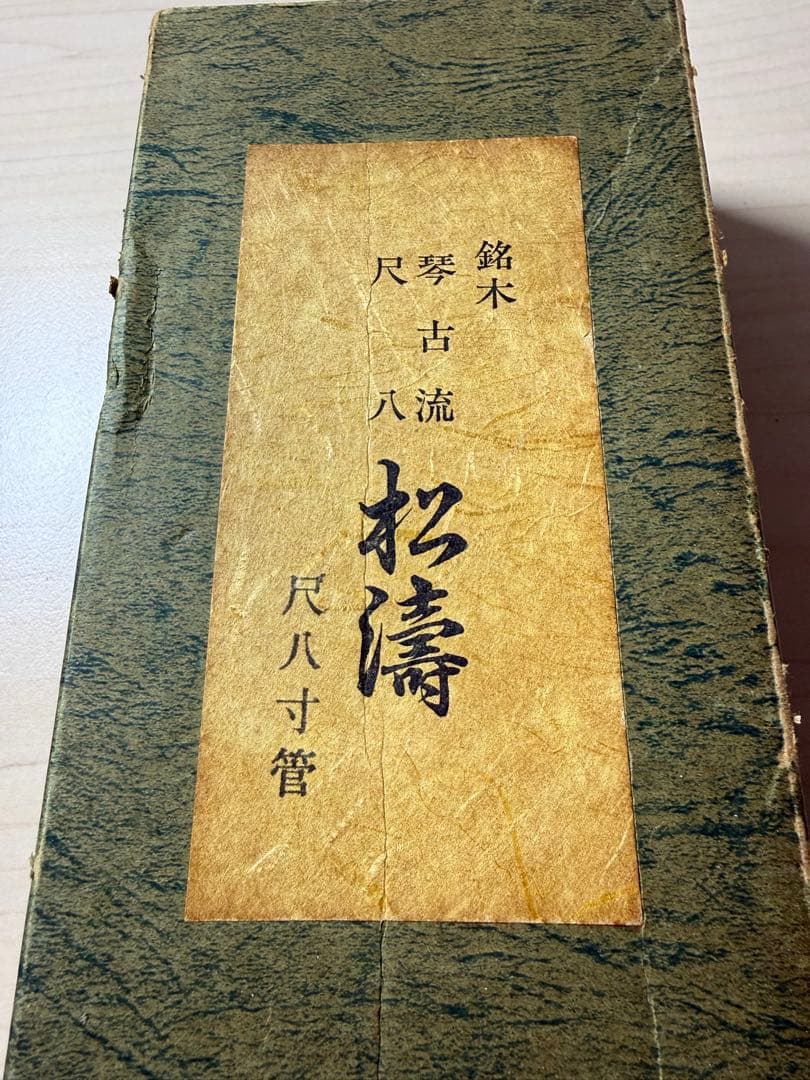 銘木
琴古流
尺八
松濤
尺八寸管